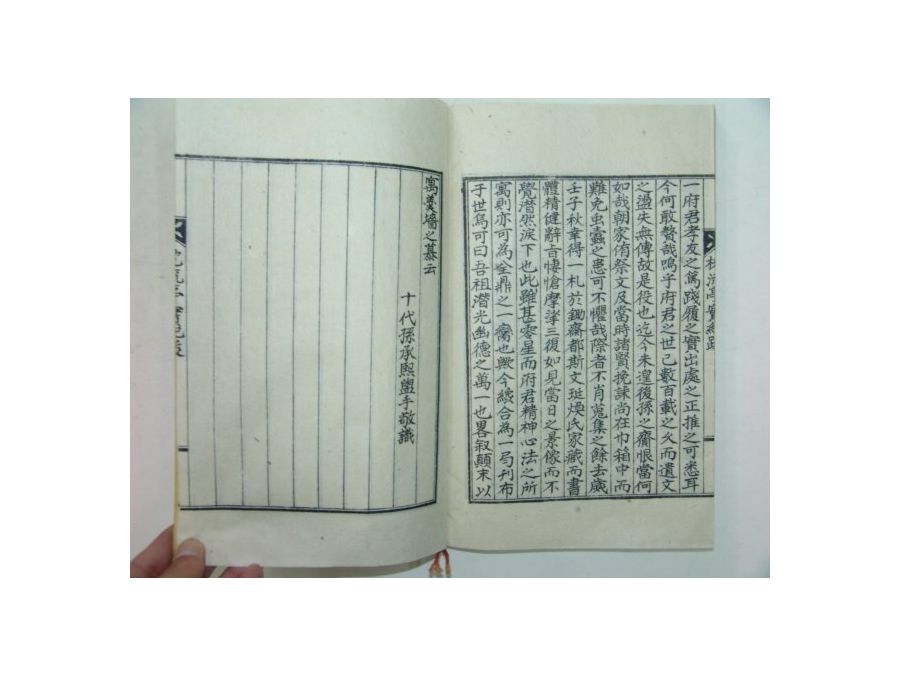 一府君孝友之篤踐履之實出處之正推之可悉耳
今何敢贅哉嗚乎府君之世已數百載之久而遺文
之盪失無傳故是役也迄今未遑後孫之齎恨當何
如哉朝家侑祭文及當時諸賢挽誄尚在巾箱中而
難免虫蠹之患可不懼哉際者不肖蒐集之餘去歲
壬子秋幸得一札於鋤齋都斯文珽煥氏家藏而書
體精健辭旨悽愴摩挲三復如見當日之景像而不
覺潛然淚下也此雖甚零星而府君精神心法之所
寓則亦可為全鼎之一臠也歟今續合為一局刊布
于世烏可曰吾祖潛光幽德之萬一也畧叙顛末以
寓羹墻之慕云
十代孫承熙盥手敬識
亭實紀跋